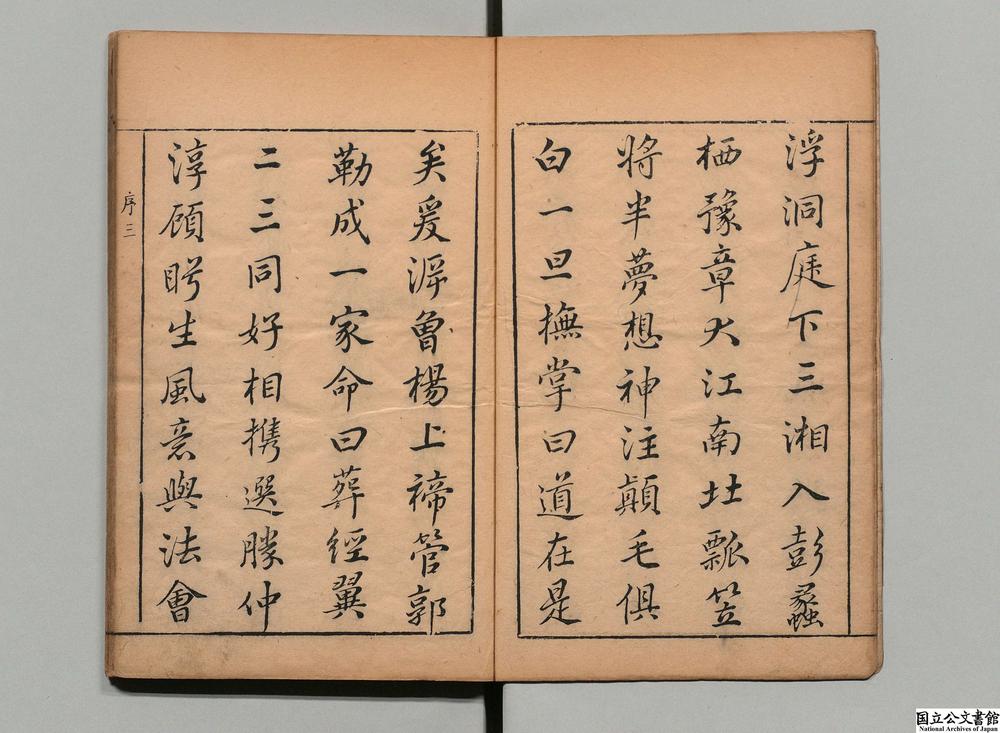 浮洞庭下三湘入彭蠡
栖豫章大江南北瓢笠
將半夢想神注顛毛俱
白一旦撫掌曰道在是
矣爰溽曾楊上褅管郭
勒成一家命曰葬經翼
二三同好相携選勝仲
淳顧眄生風意與法會
序三
国立公文書館
National Archives of Japan